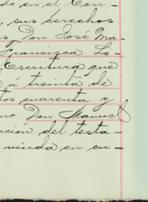 do en el Con-
, sus derechos
s, Don José Ma-
Francisca La-
Escritura que
á treinta de
tós cuarenta y
ro Don Manuel
ción del testa-
vivida en cu-